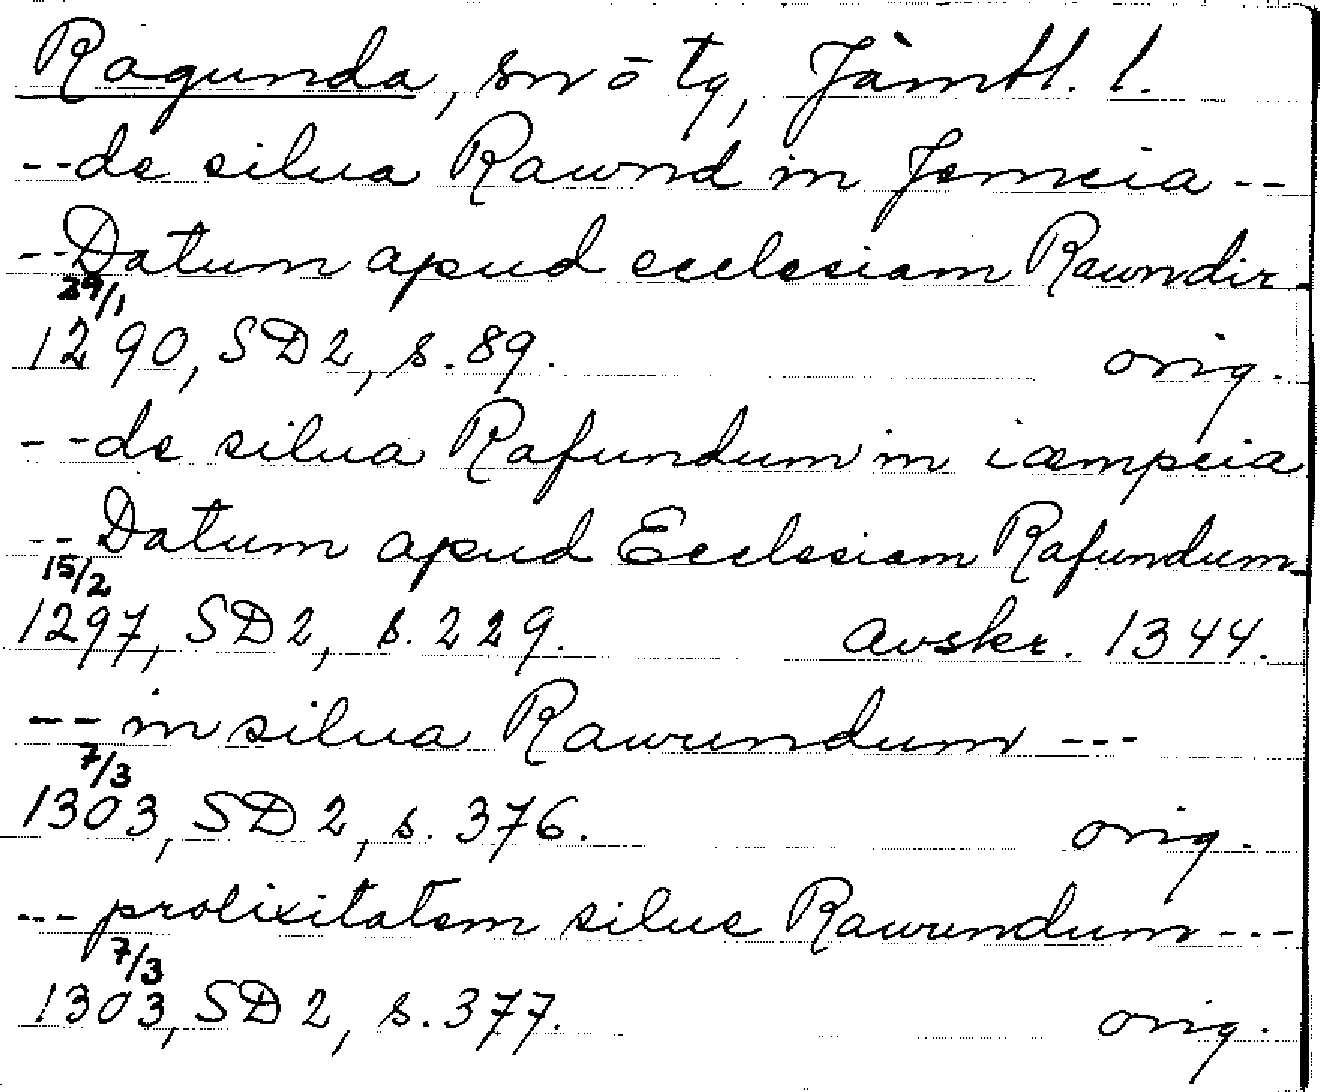 Ragunda, sn o tg, Jämtl. l.
--de silua Rawnd in Jemcia --
--Datum apud ecclesiam Rawndir-
29/1
1290, SD 2, s. 89. orig.
--de silua Rafundum in iæmpcia
-- Datum apud Ecclesiam Rafundum-
15/2
1297, SD 2, s. 229. avskr. 1344.
-- in silua Rawundum ---
7/3
1303, SD 2, s. 376. orig.
--- prolixitatem silue Rawundum ---
7/3
1303, SD 2, s. 377. orig.